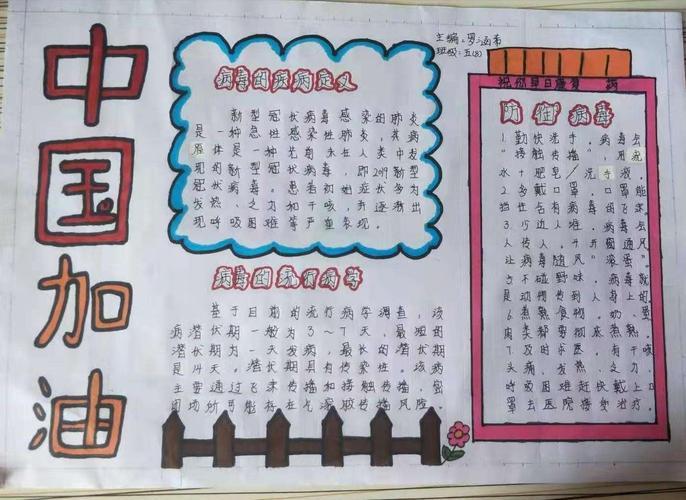 中国加油
主编:罗涵希
班级:五(8)
病毒的疾病定义
新型冠状病毒感染的肺炎
是一种急性感染性肺炎,其病
原体是一种先前未在人类中发
现的新型冠状病毒,即2019新型
冠状病毒。患者初始症状多为
发热、乏力和干咳,并逐渐出
现呼吸困难等严重表现。
病毒的流行病学
基于目前的流行病学调查,该
病潜伏期一般为3～7天,最短的
潜伏期为一天发病,最长的潜伏期
是14天。潜伏期具有传染性。该病
主要通过飞沫传播和接触传播,密
闭场所可能存在气溶胶传播风险。
祝你早日康复 病
防住病毒
1.勤快洗手。病毒会
"接触传播",用流
水+肥皂/洗手液。
2.多戴口罩。口罩能
挡住含有病毒的飞沫。
3.少边人堆。病毒会
人传人。4.开窗通风
让病毒随风"滚蛋"
5.不碰野味。病毒就
是动物传到人身上的
6.煮熟食物。奶、蛋
肉类都要彻底煮熟。
7.及时求医。有干咳
头痛、发热、乏力、
呼吸困难赶快戴上口
罩去医院接受治疗。